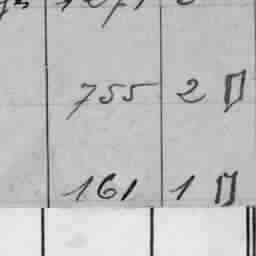 755 2 []
161 1 []